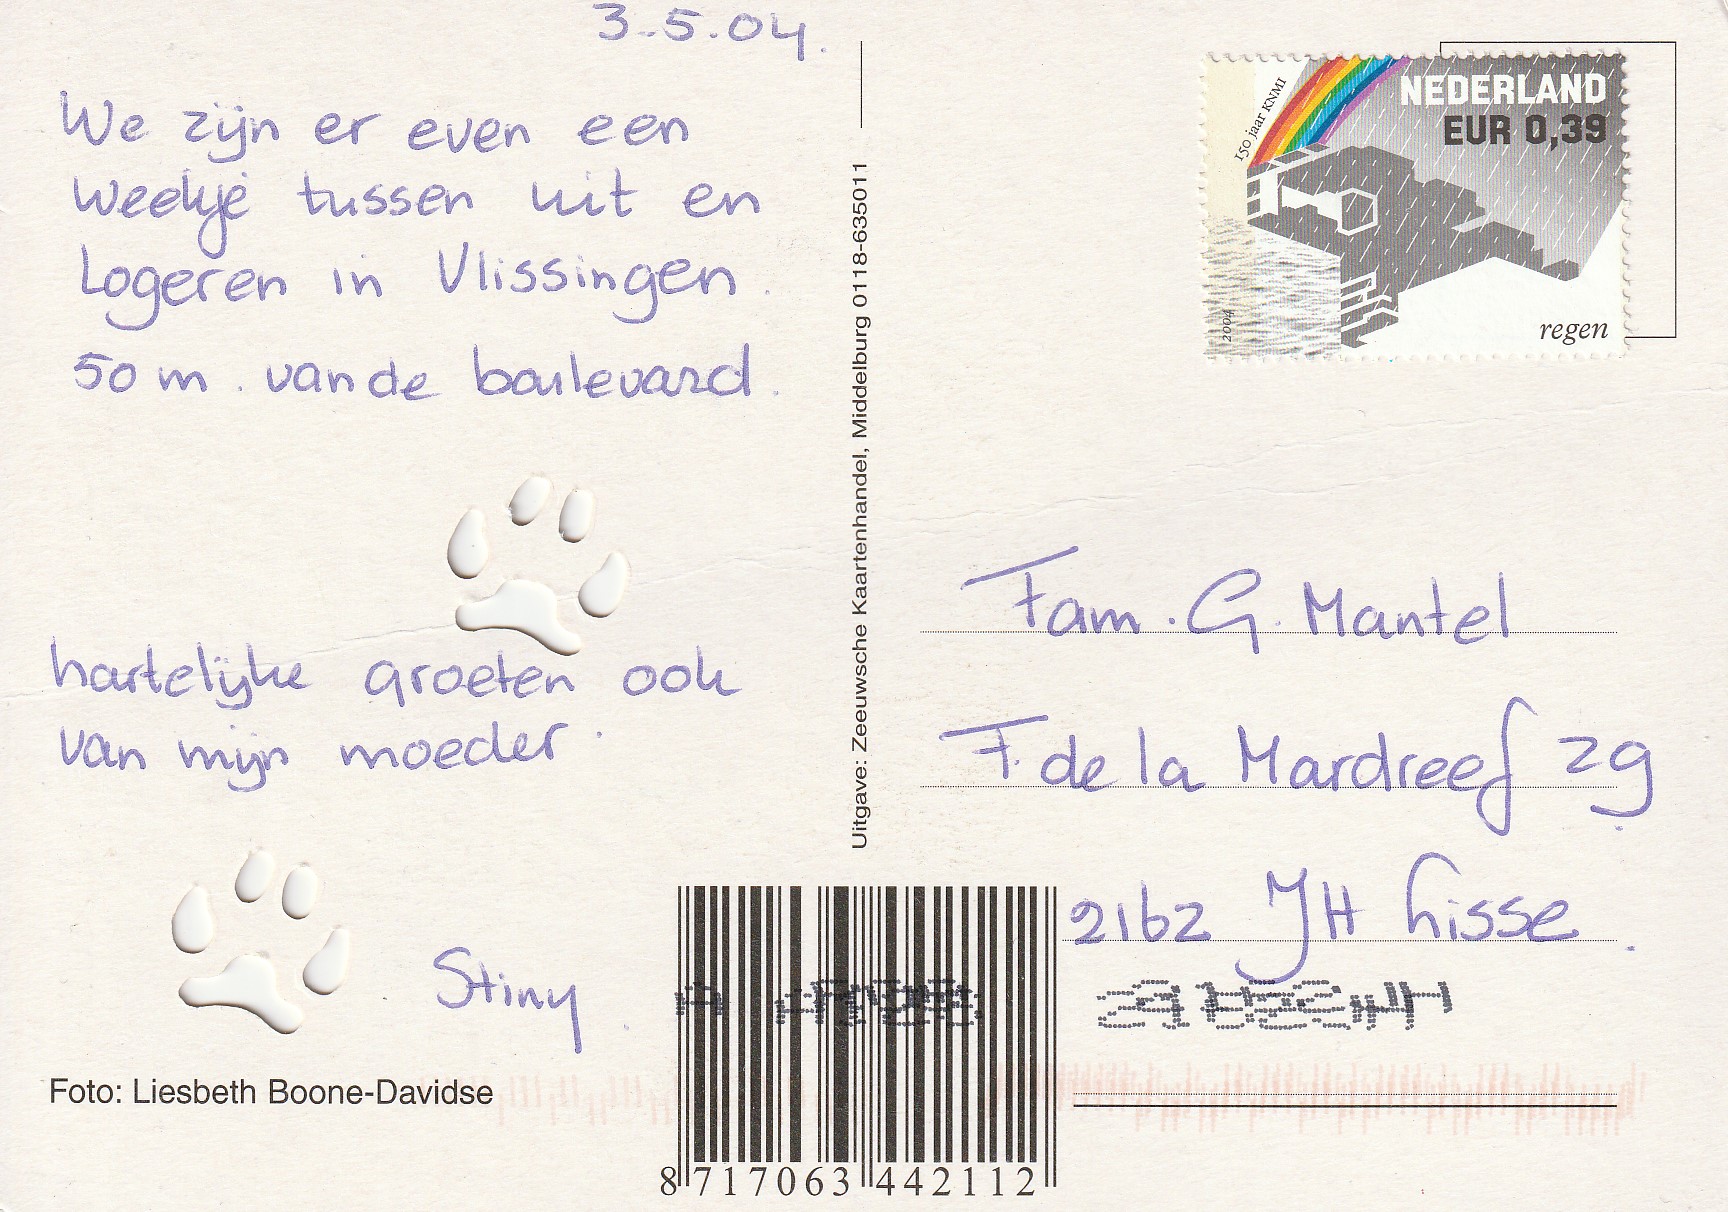 3.5.04.
We zijn er even een
weekje tussen uit en
Logeren in Vlissingen.
50 m. van de boulevard.
hartelijke groeten ook
van mijn moeder.
Stiny.
Foto: Liesbeth Boone-Davidse
Uitgave: Zeeuwsche Kaartenhandel, Middelburg 0118-635011
150 jaar KNMI
NEDERLAND
EUR 0,39
2004
regen
Fam. G. Mantel
F. de la Mardreef 29
2162 JH Lisse.
8 717063 442112